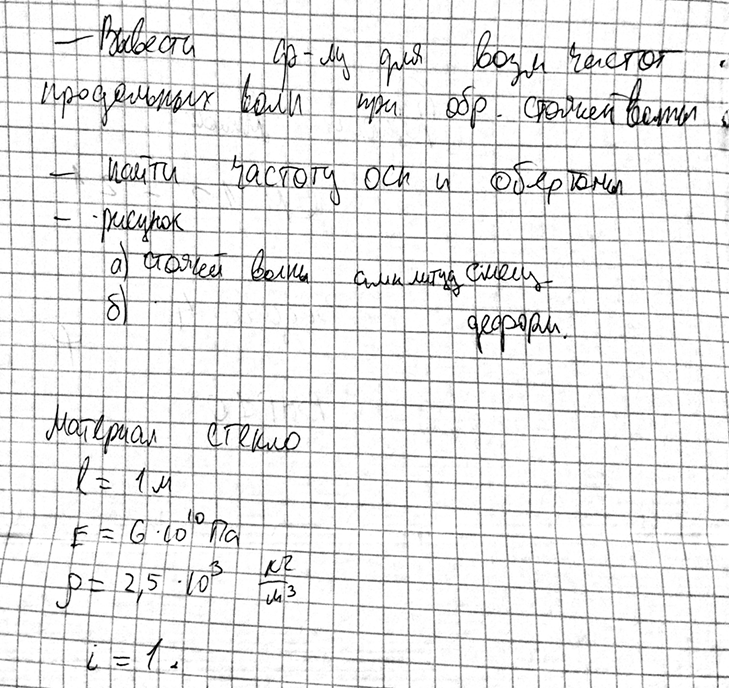 — Вывести ф-лу для возм частот
продольных волн при обр. стоячей волны
— найти частоту осн и обертоны
— рисунок
а) стоячей волны амплитуд смещ
б) деформ.
Материал стекло
l = 1 м
E = 6 · 10^10 Па
ρ = 2,5 · 10^3 кг/м^3
i = 1.